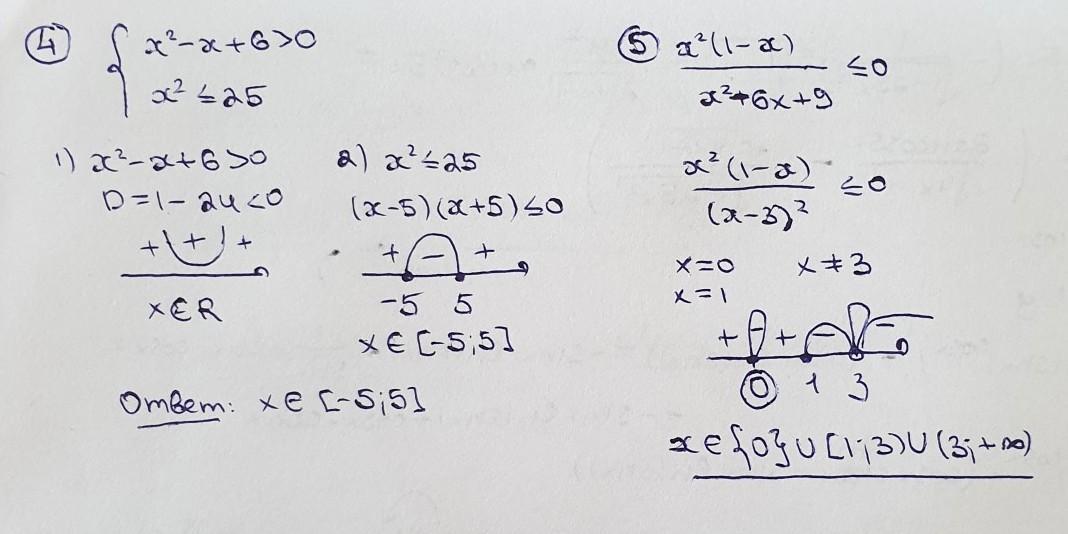 ④ { x²-x+6>0
x² ≤25
1) x²-x+6>0
D=1-24<0
+ + +
x∈R
2) x²≤25
(x-5)(x+5)≤0
+ - +
-5 5
x∈[-5;5]
Ответ: x∈[-5;5]
⑤ x²(1-x)
≤0
x²-6x+9
x²(1-x)
≤0
(x-3)²
x=0 x≠3
x=1
+ - + - -
0 1 3
x∈{0}∪[1;3)∪(3;+∞)